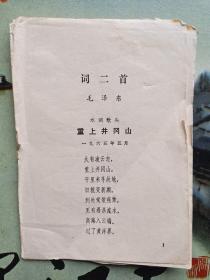 词二首
毛泽东
水调歌头
重上井冈山
一九六五年五月
久有凌云志，
重上井冈山。
千里来寻故地，
旧貌变新颜。
到处莺歌燕舞，
更有潺潺流水，
高路入云端。
过了黄洋界，
1